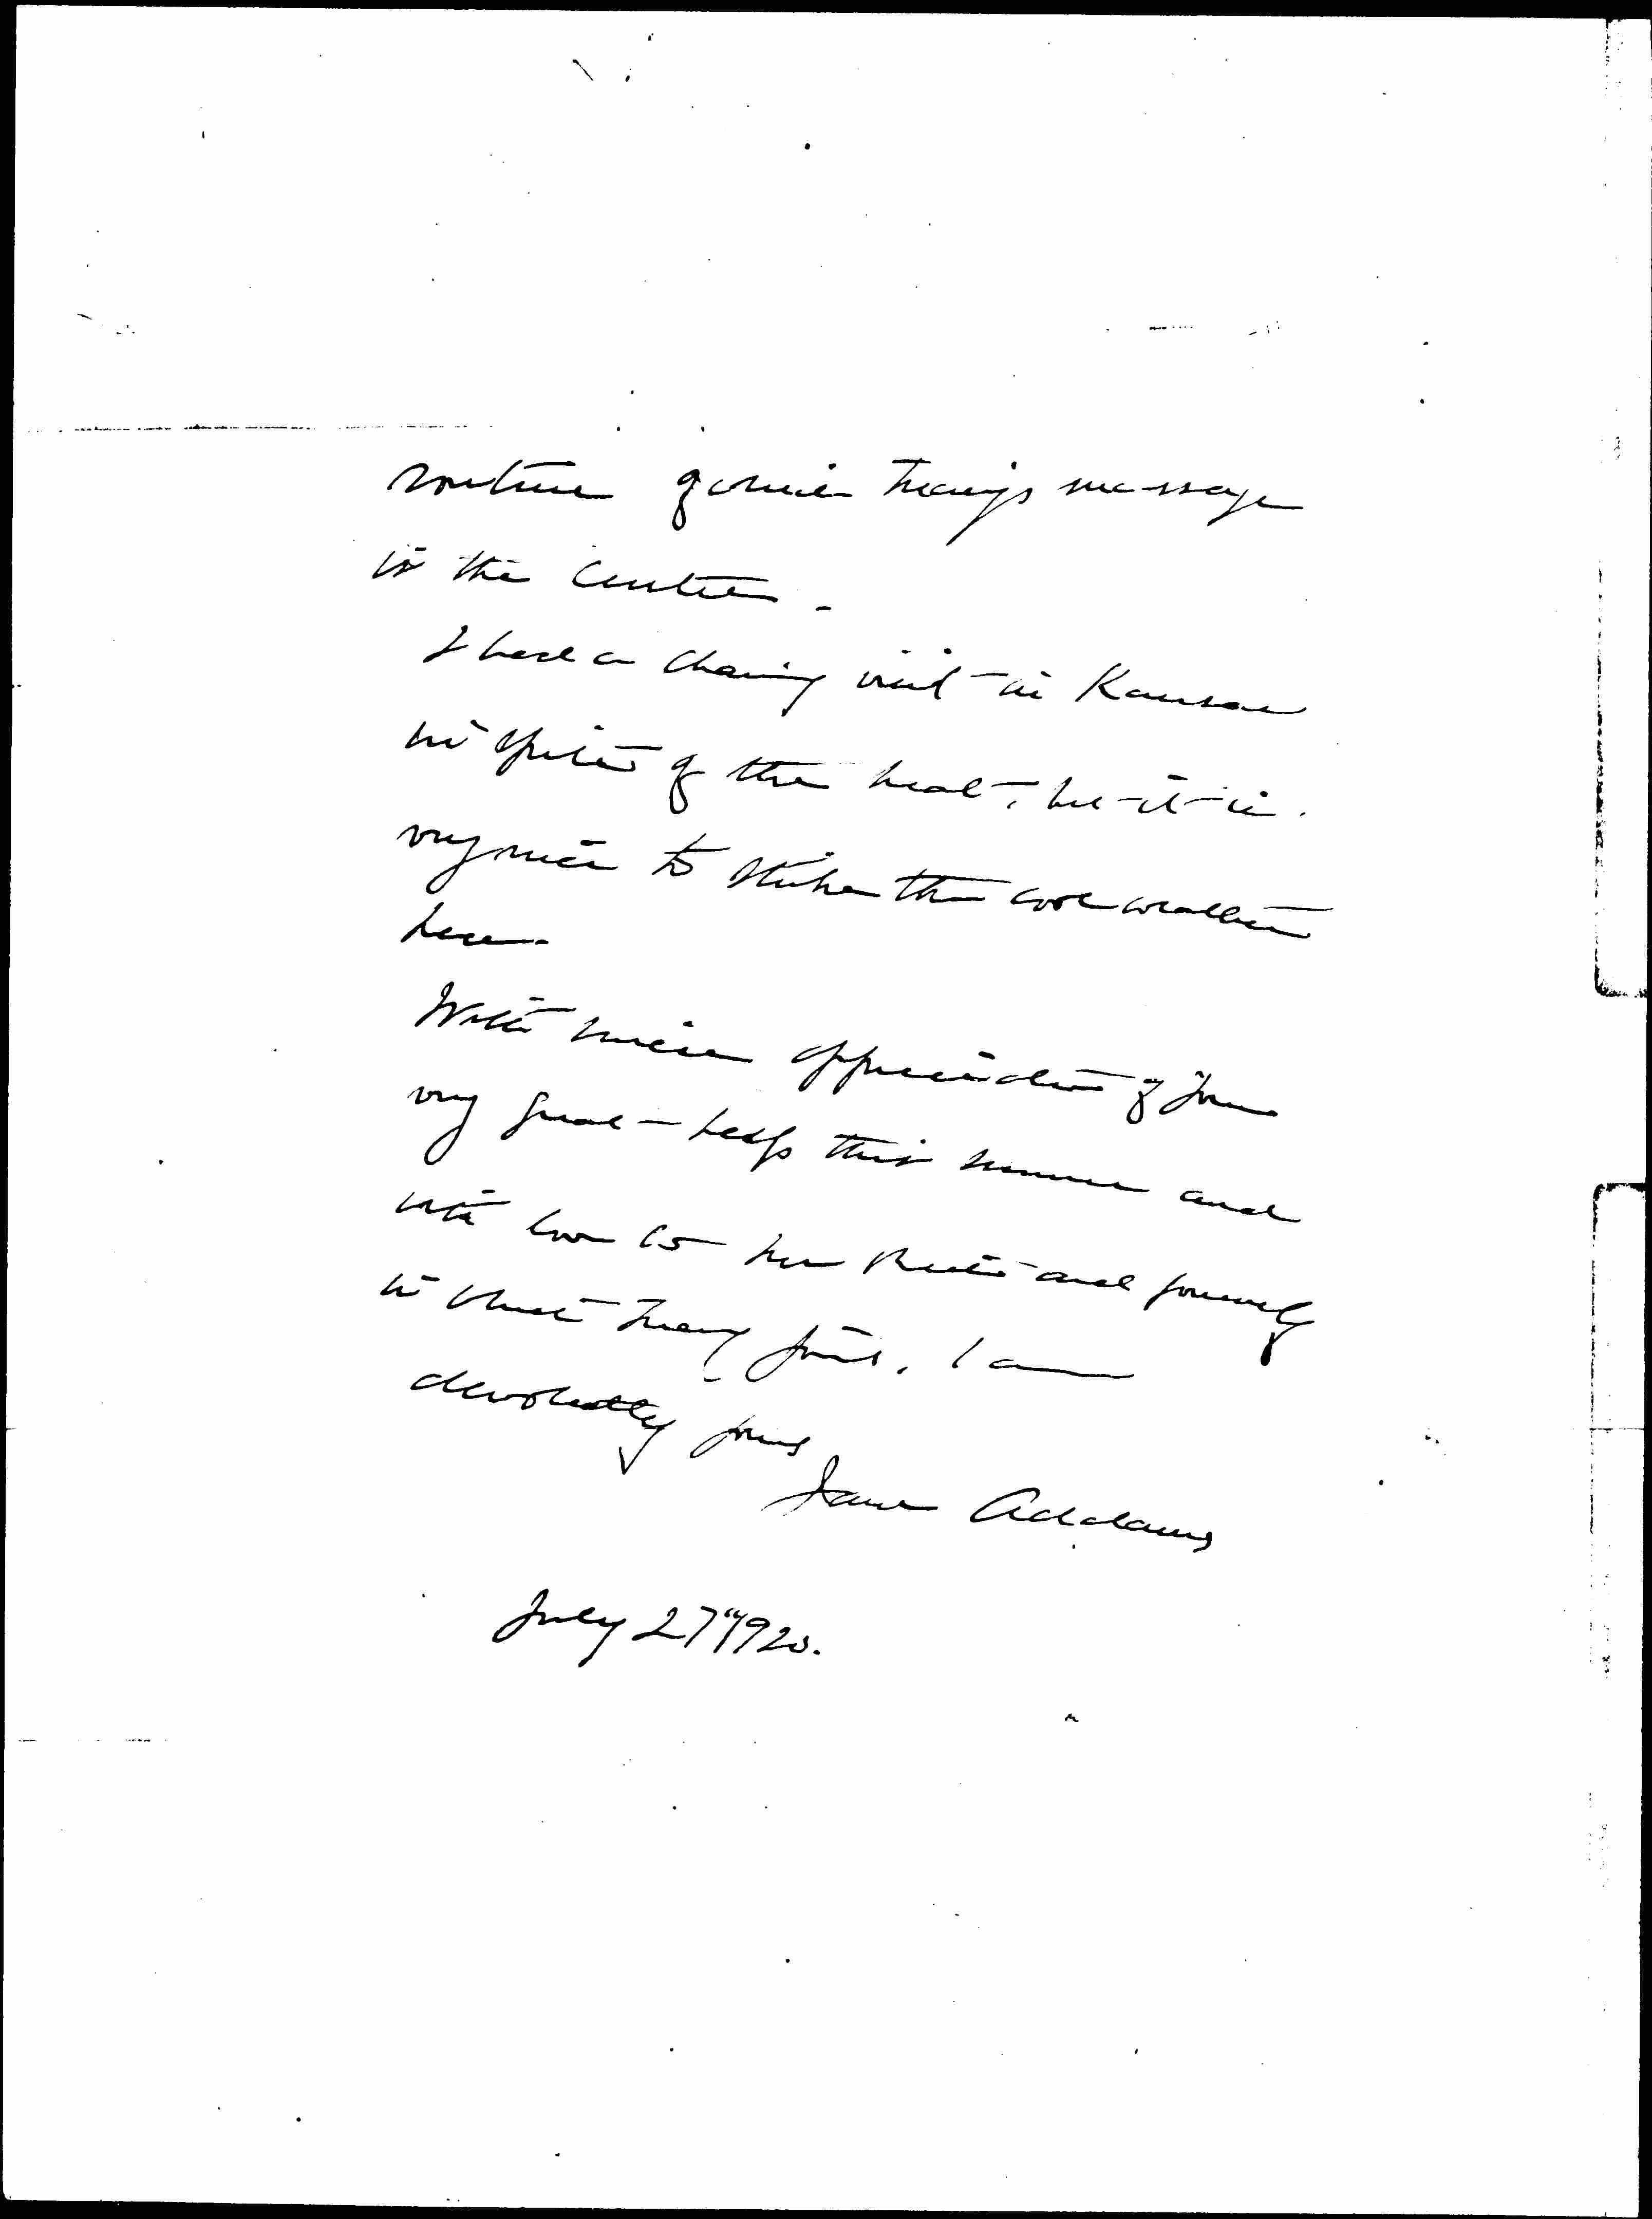 routine of Miss Tracy's message
to the Center.
I had a charming visit in Kansas
in spite of the heat, but it is
very nice to strike the cool weather
here.
With sincere appreciation of your
very great help this summer and
with love to Mrs and yourself
in which Mary joins, I am
devotedly yours
Jane Addams
July 27" 1920.